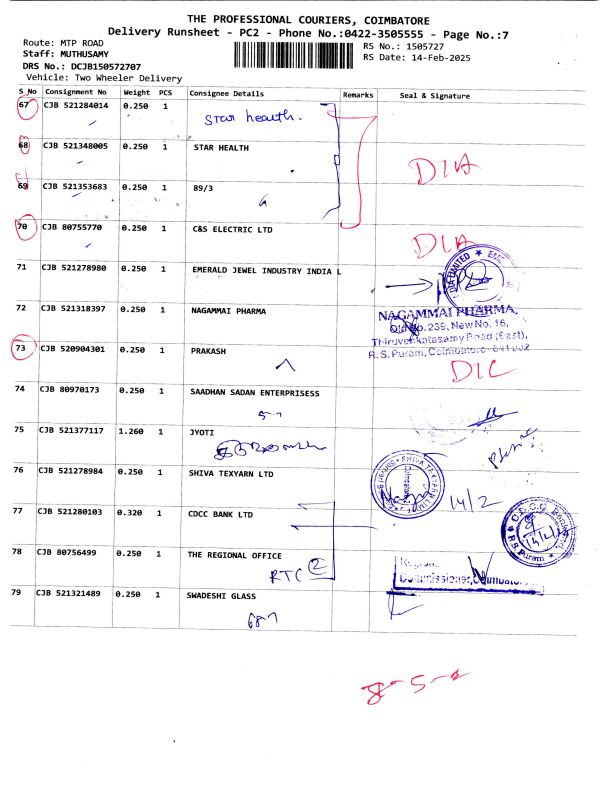 THE PROFESSIONAL COURIERS, COIMBATORE
Delivery Runsheet - PC2 - Phone No.:0422-3505555 - Page No.:7
Route: MTP ROAD
RS No.: 1505727
Staff: MUTHUSAMY
RS Date: 14-Feb-2025
DRS No.: DCJB150572707
Vehicle: Two Wheeler Delivery
S_No Consignment No Weight PCS Consignee Details Remarks Seal & Signature
67 CJB 521284014 0.250 1 Star health.
68 CJB 521348005 0.250 1 STAR HEALTH
DIA
69 CJB 521353683 0.250 1 89/3
70 CJB 80755770 0.250 1 C&S ELECTRIC LTD
DIA
71 CJB 521278980 0.250 1 EMERALD JEWEL INDUSTRY INDIA L
72 CJB 521318397 0.250 1 NAGAMMAI PHARMA
NAGAMMAI PHARMA,
Old No. 239, New No. 16,
Thiruvenkatasamy Road (East),
R.S. Puram, Coimbatore-641 002
73 CJB 520904301 0.250 1 PRAKASH
DIC
74 CJB 80970173 0.250 1 SAADHAN SADAN ENTERPRISESS
75 CJB 521377117 1.260 1 JYOTI
76 CJB 521278984 0.250 1 SHIVA TEXYARN LTD
SHIVA TEXYARN LIMITED
14/2
77 CJB 521280103 0.320 1 CDCC BANK LTD
C.D.C.C. Bank Ltd
R S Puram
78 CJB 80756499 0.250 1 THE REGIONAL OFFICE
RTC 2
Commissioner, Coimbatore
79 CJB 521321489 0.250 1 SWADESHI GLASS
687